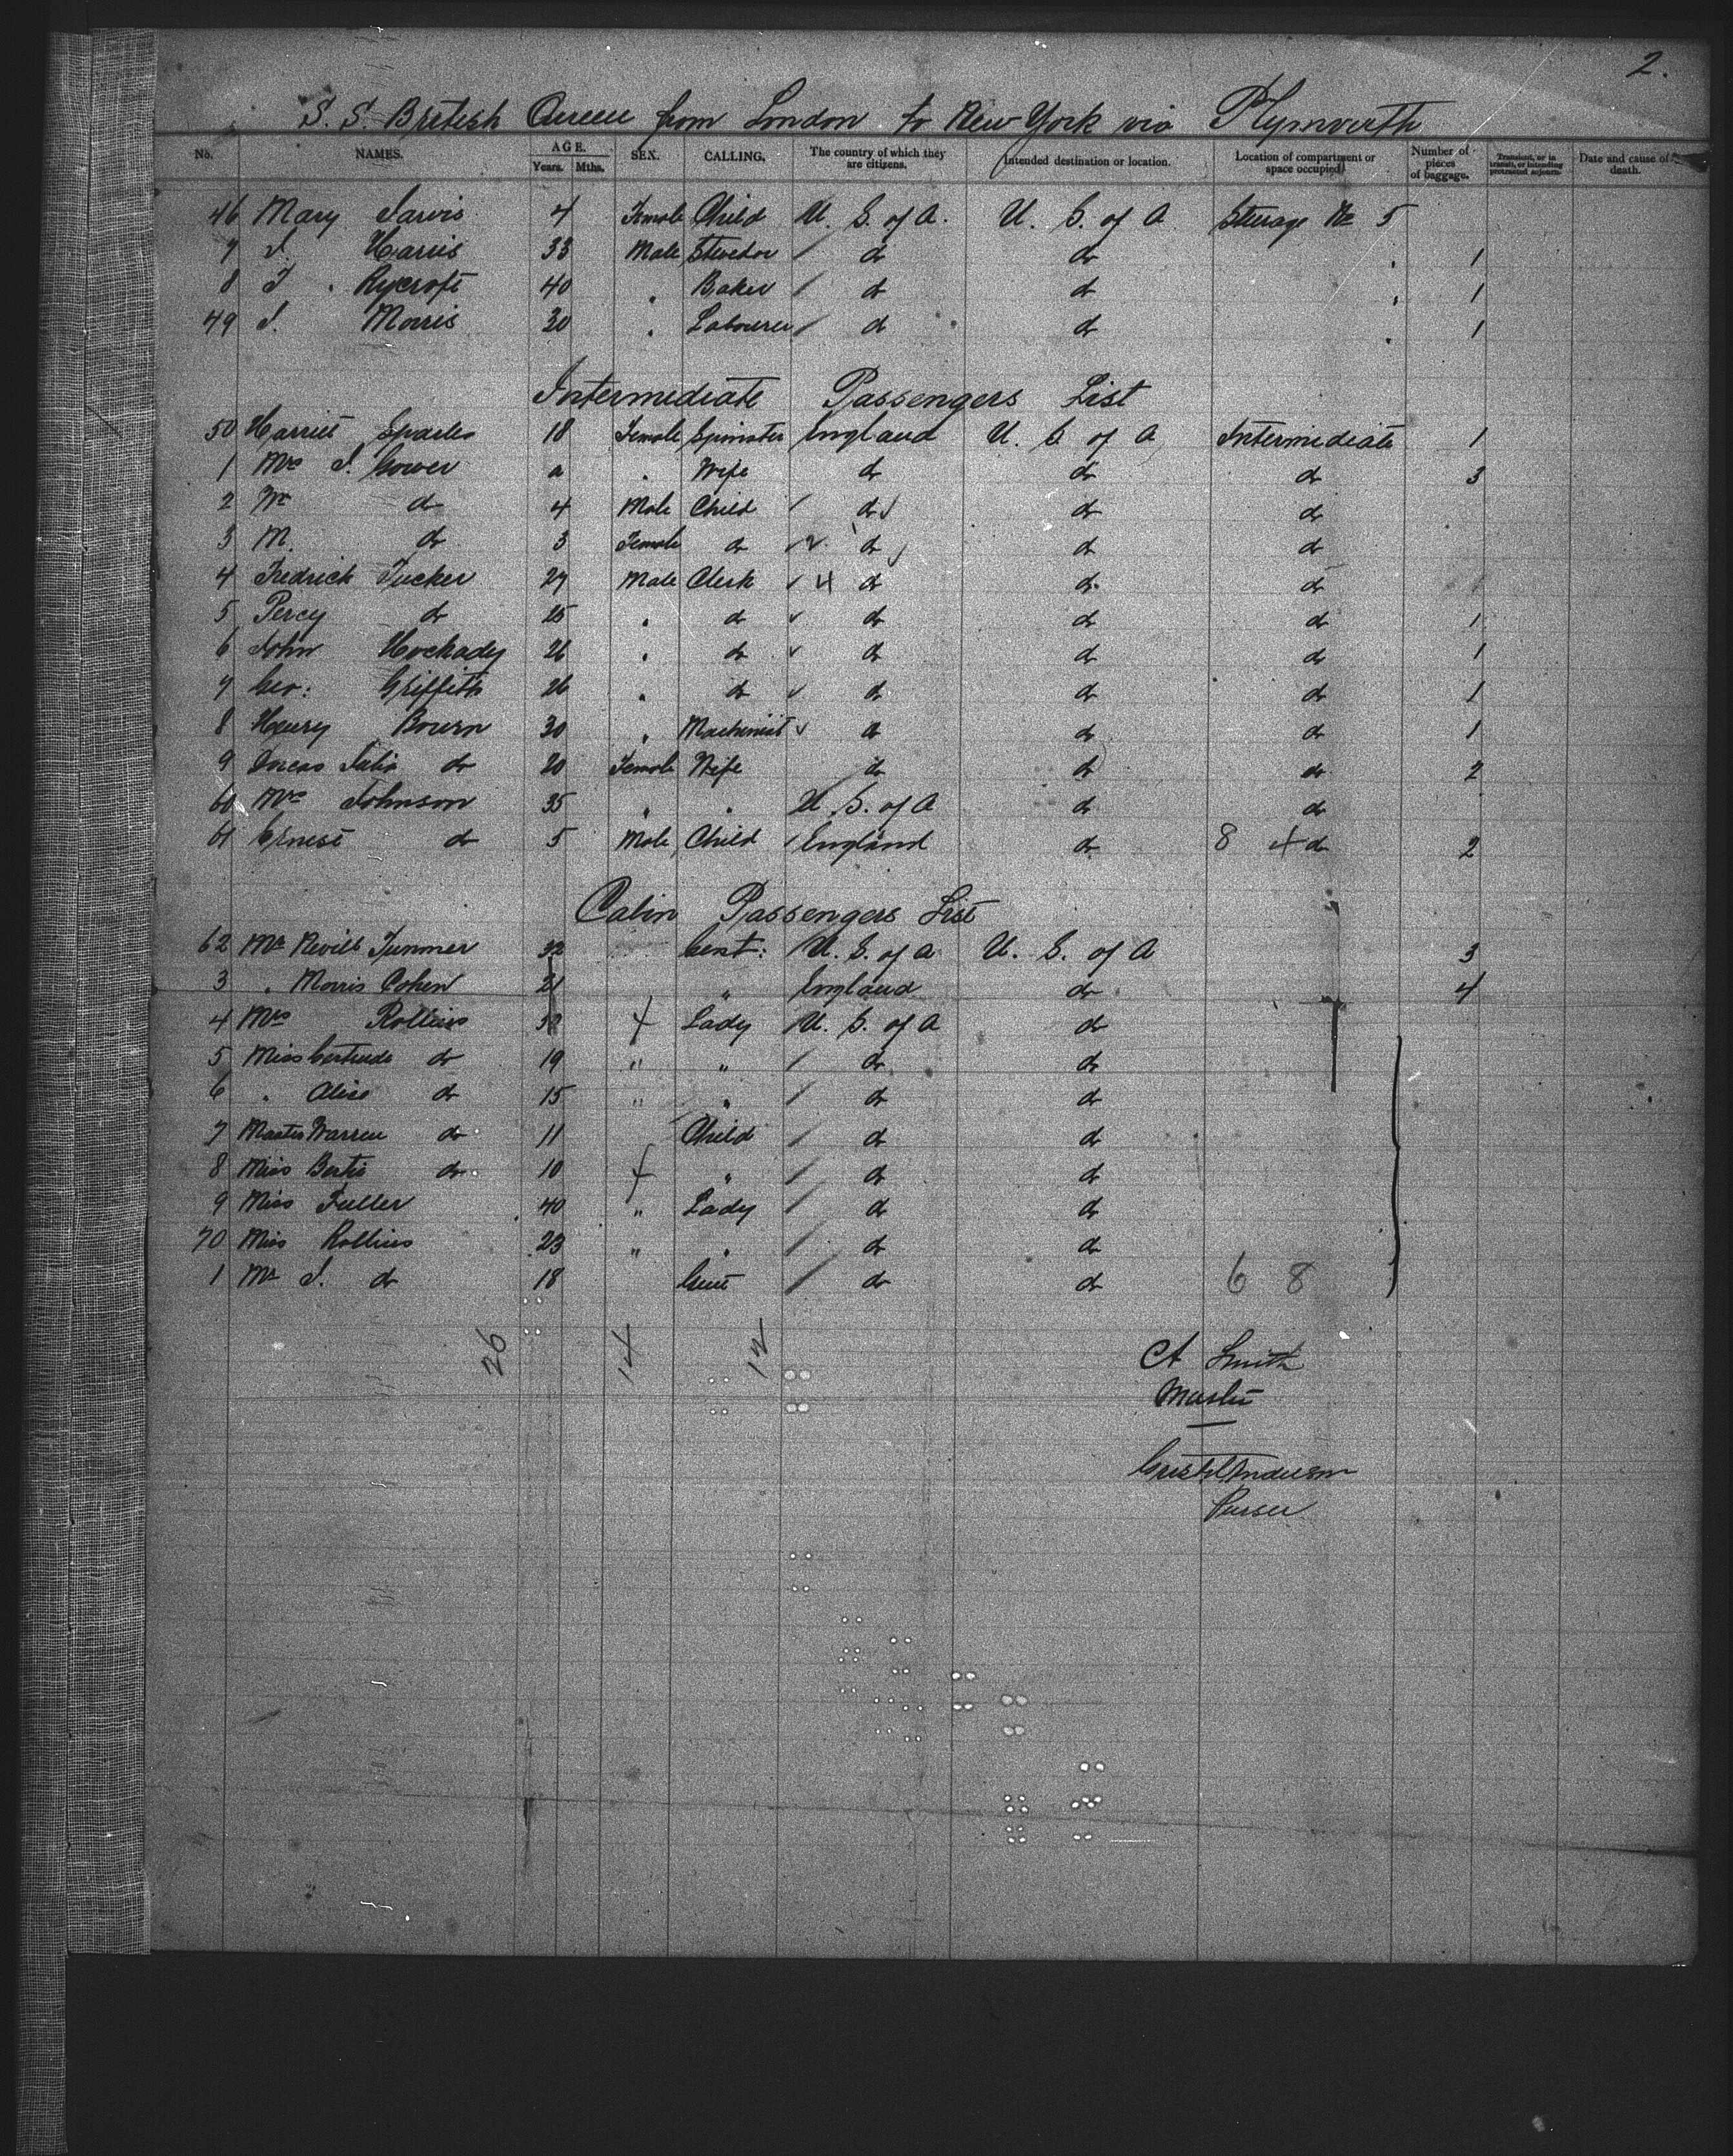 2.
S. S. British Queen from London to New York via Plymouth
No. NAMES. AGE. Years. Mths. SEX. CALLING. The country of which they are citizens. Intended destination or location. Location of compartment or space occupied. Number of pieces of baggage. Transient, or in transit, or intending protracted sojourn. Date and cause of death.
46 Mary Jarvis 4 Female Child U. S. of A. U. S. of A Steerage No 5
7 J. Harris 33 Male Stevedor / do do 1
8 J. Rycroft 40 " Baker / do do 1
49 J. Morris 30 " Labourer / do do 1
Intermediate Passengers List
50 Harriet Sparks 18 Female Spinster England U. S. of A Intermediate 1
1 Mrs J. Gower a " Wife do do do 3
2 Wm do 4 Male Child / do do do
3 M. do 3 Female do 2 do do do
4 Fredrick Tucker 27 Male Clerk 4 do do do 1
5 Percy do 25 " do do do do 1
6 John Hockady 26 " do do do do 1
7 Geo: Griffith 26 " do do do do 1
8 Henry Bourn 30 " Machinist do do do 1
9 Julia do 20 Female Wife do do do 2
60 Mrs Johnson 35 " " U. S. of A do do
61 Ernest do 5 Male Child / England do 8 4 do 2
Cabin Passengers List
62 Mr Nevill Tummer 32 Gent: U. S. of A U. S. of A 3
3 " Morris Cohen 21 " England do 4
4 Mrs Rollins 38 f Lady / U. S. of A do
5 Miss Gertrude do 19 " " / do do
6 " Alice do 15 " " / do do
7 Master Warren do 11 Child / do do
8 Miss Bertie do 10 f " / do do
9 Miss Fuller 40 " Lady / do do
70 Miss Rollins 23 " " / do do
1 Mr J. do 18 Gent / do do 6 8
26 14 12
A Smith
Master
Anderson
Purser